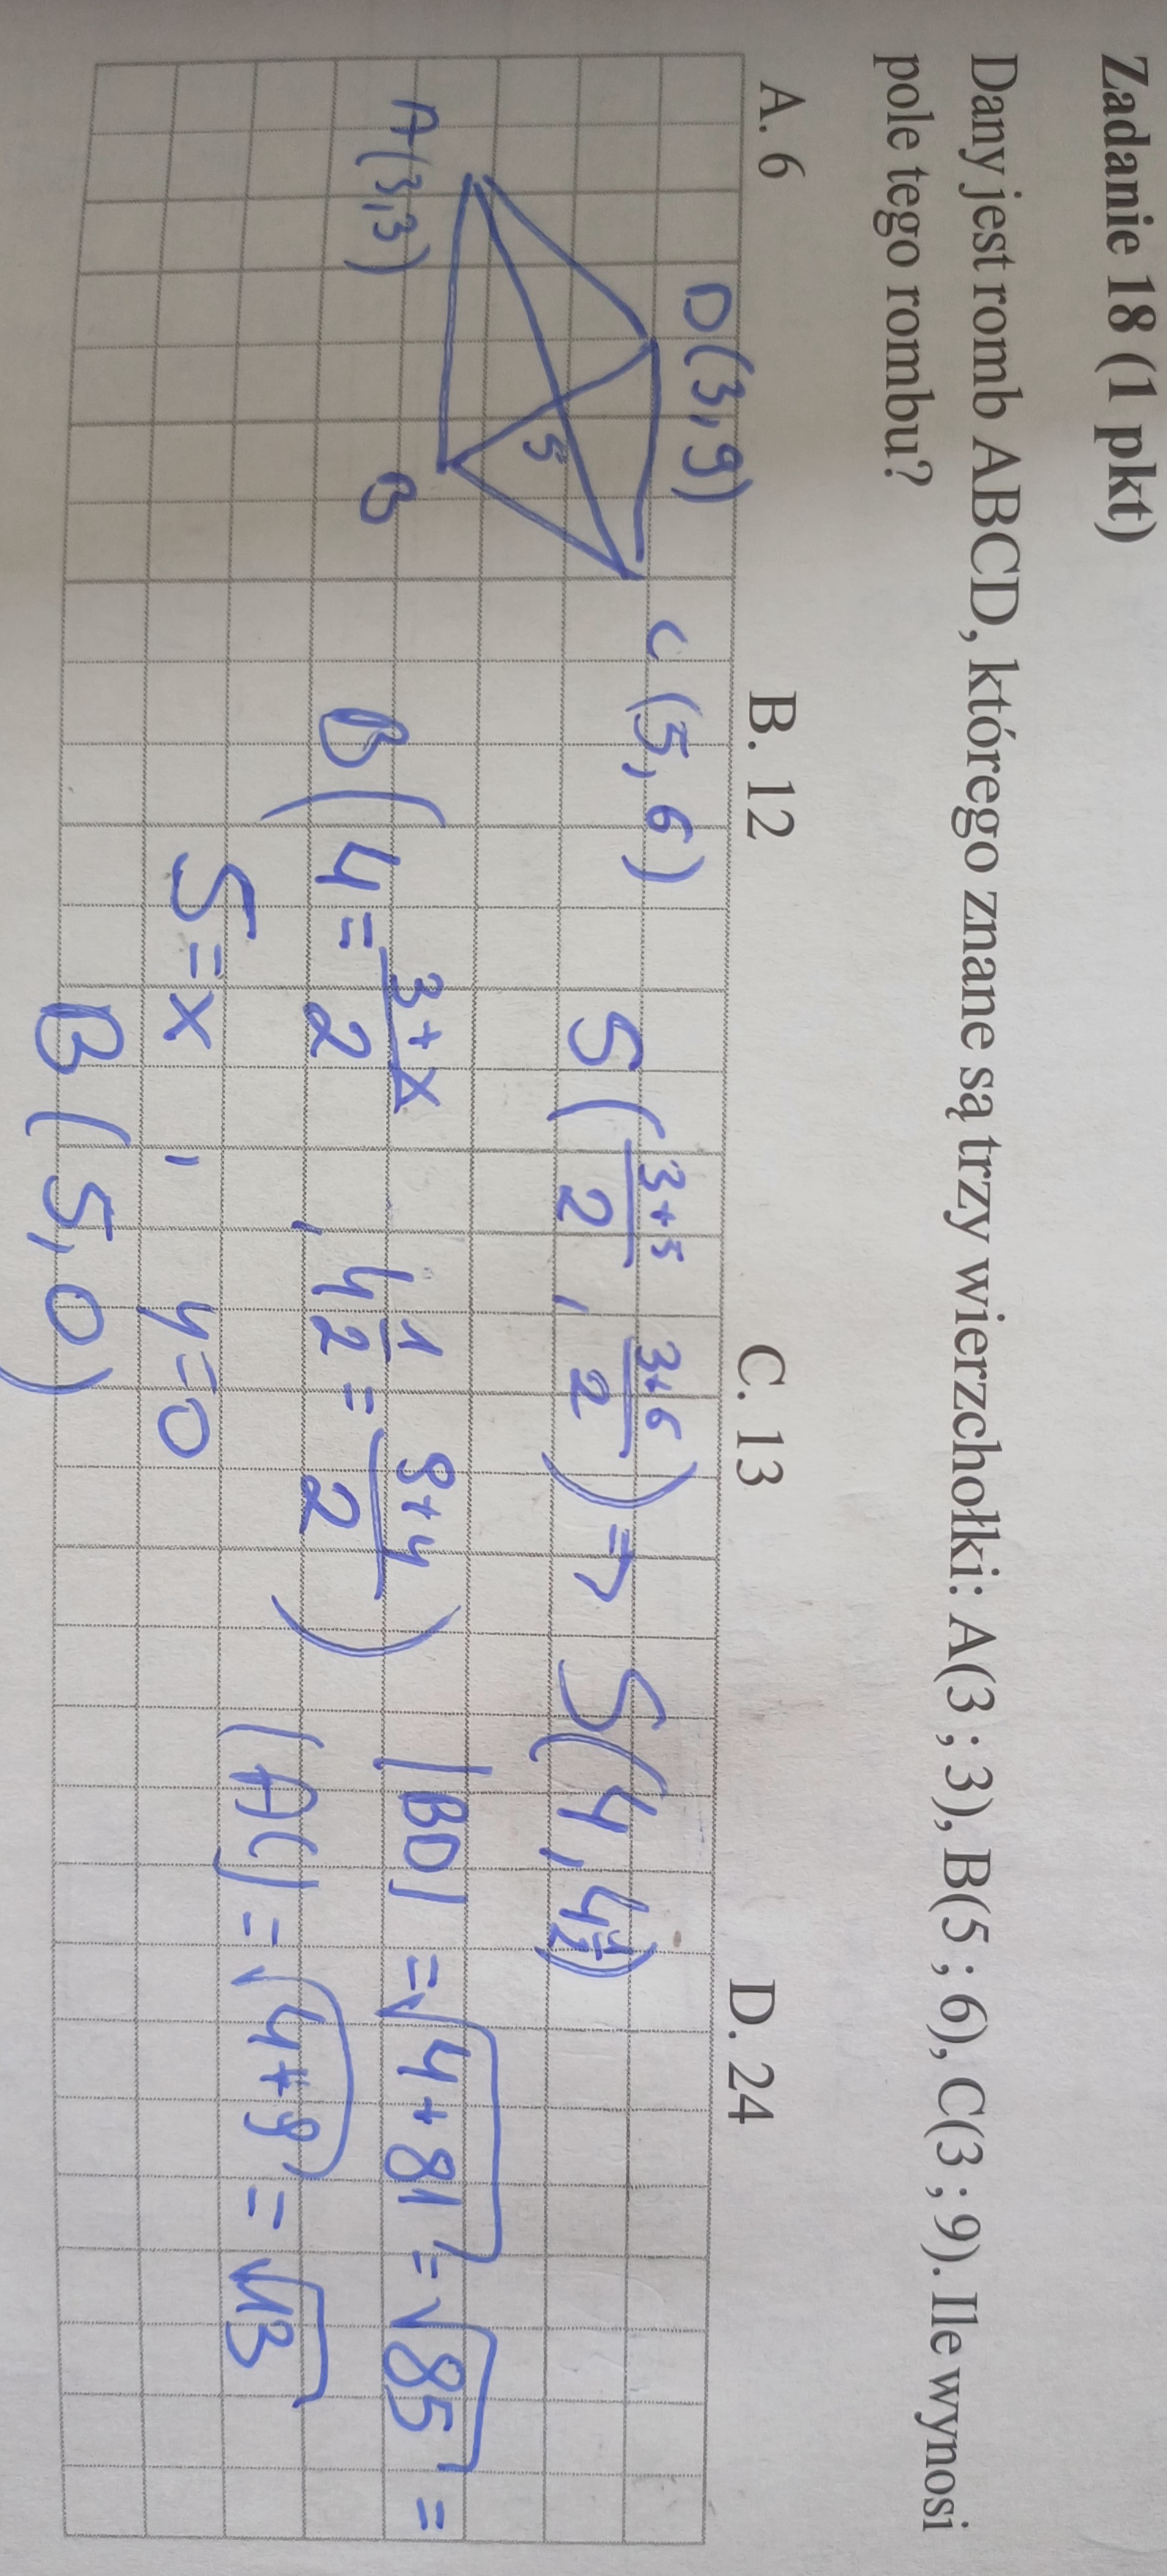 Zadanie 18 (1 pkt)
Dany jest romb ABCD, którego znane są trzy wierzchołki: A(3 ; 3), B(5 ; 6), C(3 ; 9). Ile wynosi
pole tego rombu?
A. 6 B. 12 C. 13 D. 24
D(3,9) C (5,6) S(3+5/2, 3+6/2) => S(4, 4 1/2)
S
A(3,3) B B(4=3+x/2, 4 1/2=9+y/2) |BD| =√4+81=√85=
5=x, y=0 |AC|=√4+9=√13
B(5,0)